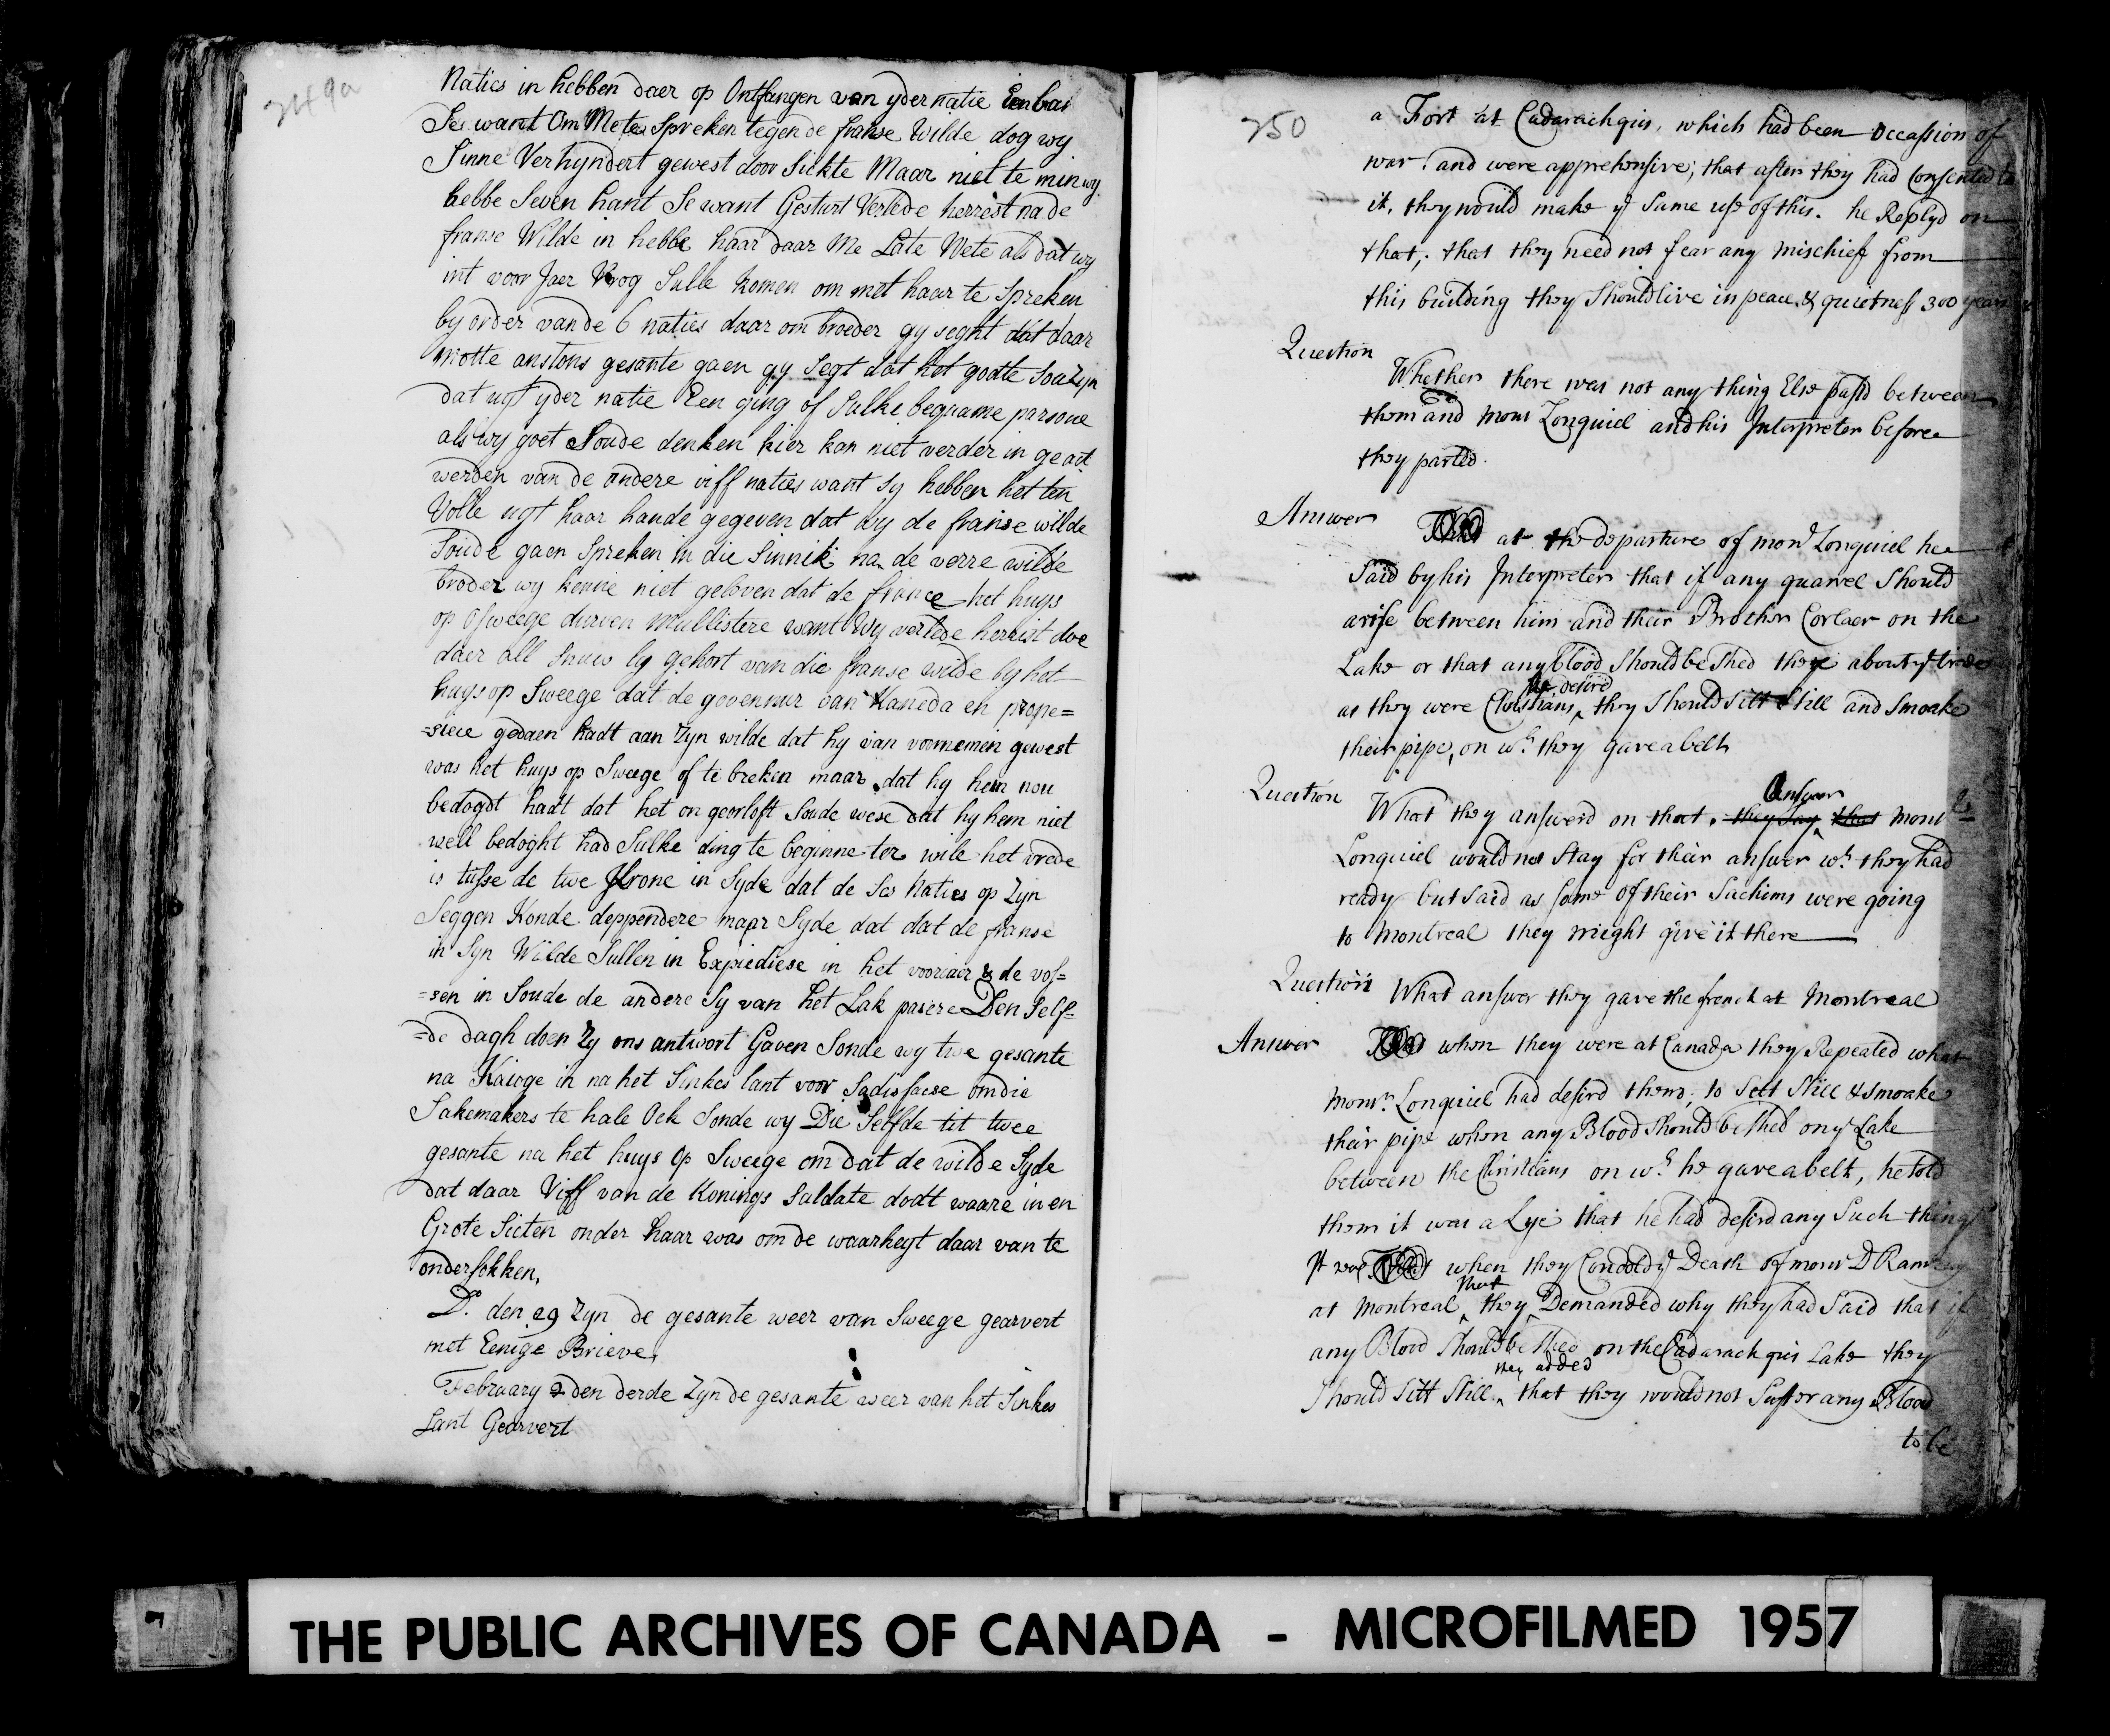 249a
Naties in hebben daer op Ontfangen van yder natie Een
Se want Om Mete Spreken tegen de franse Wilde dog wy
Sinne Verhyndert gewest door Sickte Maar niet te min wy
hebbe Seven hant Se want Gesturt Verlede herrest na de
franse Wilde in hebbe haar daar Me Late Wete als dat wy
int voor Jaer Vrog Sulle komen om met haar te Spreken
by order van de 6 naties daar om broeder gy seght dat daar
motte anstons gesante gaen gy Segt dat het godte Soa Zyn
dat ugt yder natie Een ging of Sulke bequame persone
als wy goet Soude denken hier kan niet verder in geact
werden van de andere viff naties want sy hebben het ten
Volle ugt haar hande gegeven dat wy de franse wilde
Soude gaen Spreken in die Sinnik na de verre wilde
broder wy kenne niet geloven dat de france het huys
op Osweege durven mullistere want Wy verlede herrist doe
daer all Snuw lg gehort van die franse wilde by het
huys op Sweege dat de govenuur van Kaneda en prope=
=siecie gedaen hadt aan Zyn wilde dat hy van voornemin gewest
was het huys op Sweege of te breken maar dat hy hem nou
bedogdt hadt dat het on georloft Soude wese dat hy hem niet
well bedoght had Sulke ding te beginne ter wile het vrede
is tusse de twe krone in Syde dat de Ses Naties op Zyn
Seggen Konde deppendere maar Syde dat dat de franse
in Syn Wilde Sullen in Expiediese in het voorjair & de vos=
=sen in Soude de andere Sy van het Lak pasere Den Self=
=de dagh doen Zy ons antwort Gaven Sonde wy twe gesante
na Kaioge in na het Sinkes lant voor Sadisfacse om die
Sakemakers te hale Ock Sonde wy Die Selfde tit twee
gesante na het huys Op Sweege om dat de wilde Syde
dat daar Viff van de Konings Saldate dodt waare in en
Grote Sicten onder haar was om de waarheyt daar van te
ondersokken,
Do. den 29 Zyn de gesante weer van Sweege gearvert
met Eenige Brieve,
February 2 den derde Zyn de gesante weer van het Sinkes
Lant Gearvert
250
a Fort at Cadarachquis, which had been Occassion of
war. and were apprehensive; that after they had Consented to
it, they would make ye Same use of this. he Replyd on
that; that they need not fear any mischief from
this building they Should live in peace & quietness 300 years
Question
Whether there was not any thing Else pass'd between
them and Mons Longuiel and his Interpreter before
they parted.
Answer
That at the departure of mons Longuiel he
Said by his Interpreter that if any quarrel Should
arise between him and their Brother Corlaer on the
Lake or that any blood Should be Shed there about ye trade
he desird
as they were Christians ‸ they Should Sitt Still and Smoake
their pipe, on wh. they gave a belt
Question
Answer
What they answerd on that. they Say ‸ that Monsr
Longuiel would not Stay for their answer wh. they had
ready but Said as Some of their Sachims were going
to Montreal they might give it there
Question
What answer they gave the french at Montreal
Answer
That when they were at Canada they Repeated what
Monsr. Longuiel had desird them, to Sett Still & Smoake
their pipe when any Blood Should be Shed on ye Lake
between the Christians on wh. he gave a belt, he told
them it was a Lye that he had desird any Such things
It was That when they Condold ye Death of mons D Ramsey
that
at Montreal ‸ they ‸ Demanded why they had Said that if
any Blood Should be Shed on the Cadarachquis Lake they
they added
Should Sitt Still ‸ that they would not Suffer any Blood
to be
THE PUBLIC ARCHIVES OF CANADA - MICROFILMED 1957